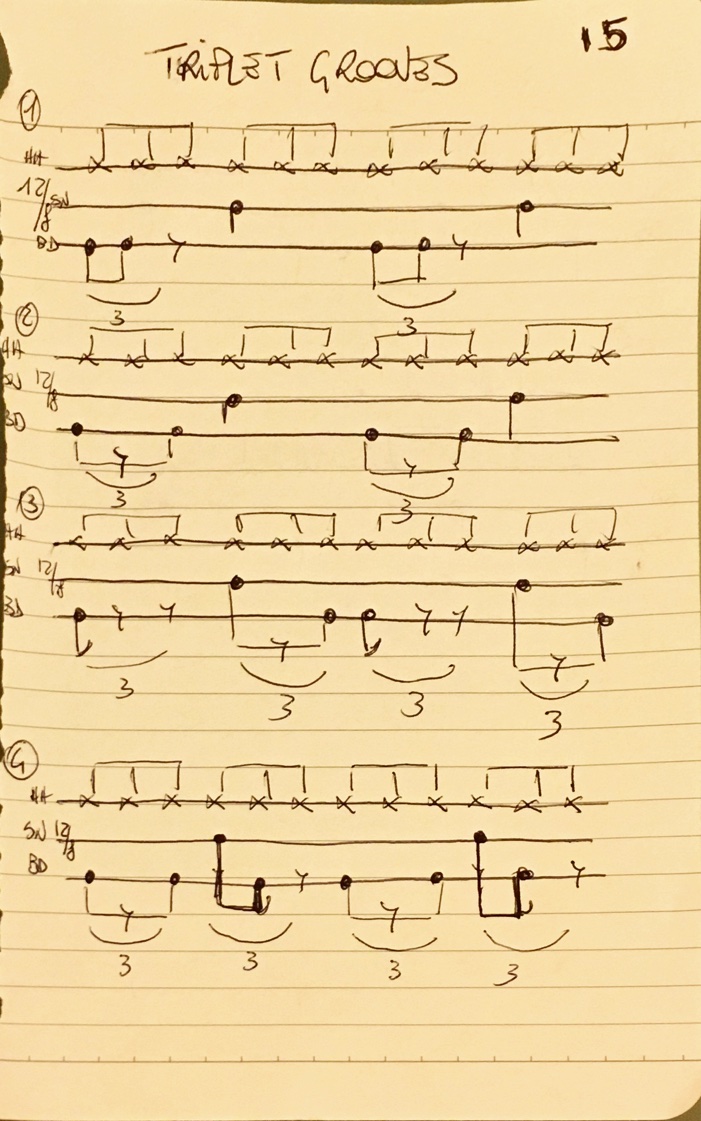 15
TRIPLET GROOVES
1
HH
12/8 SN
BD
3 3
2
HH
SN 12/8
BD
3 3
3
HH
SN 12/8
BD
3 3 3 3
4
HH
SN 12/8
BD
3 3 3 3